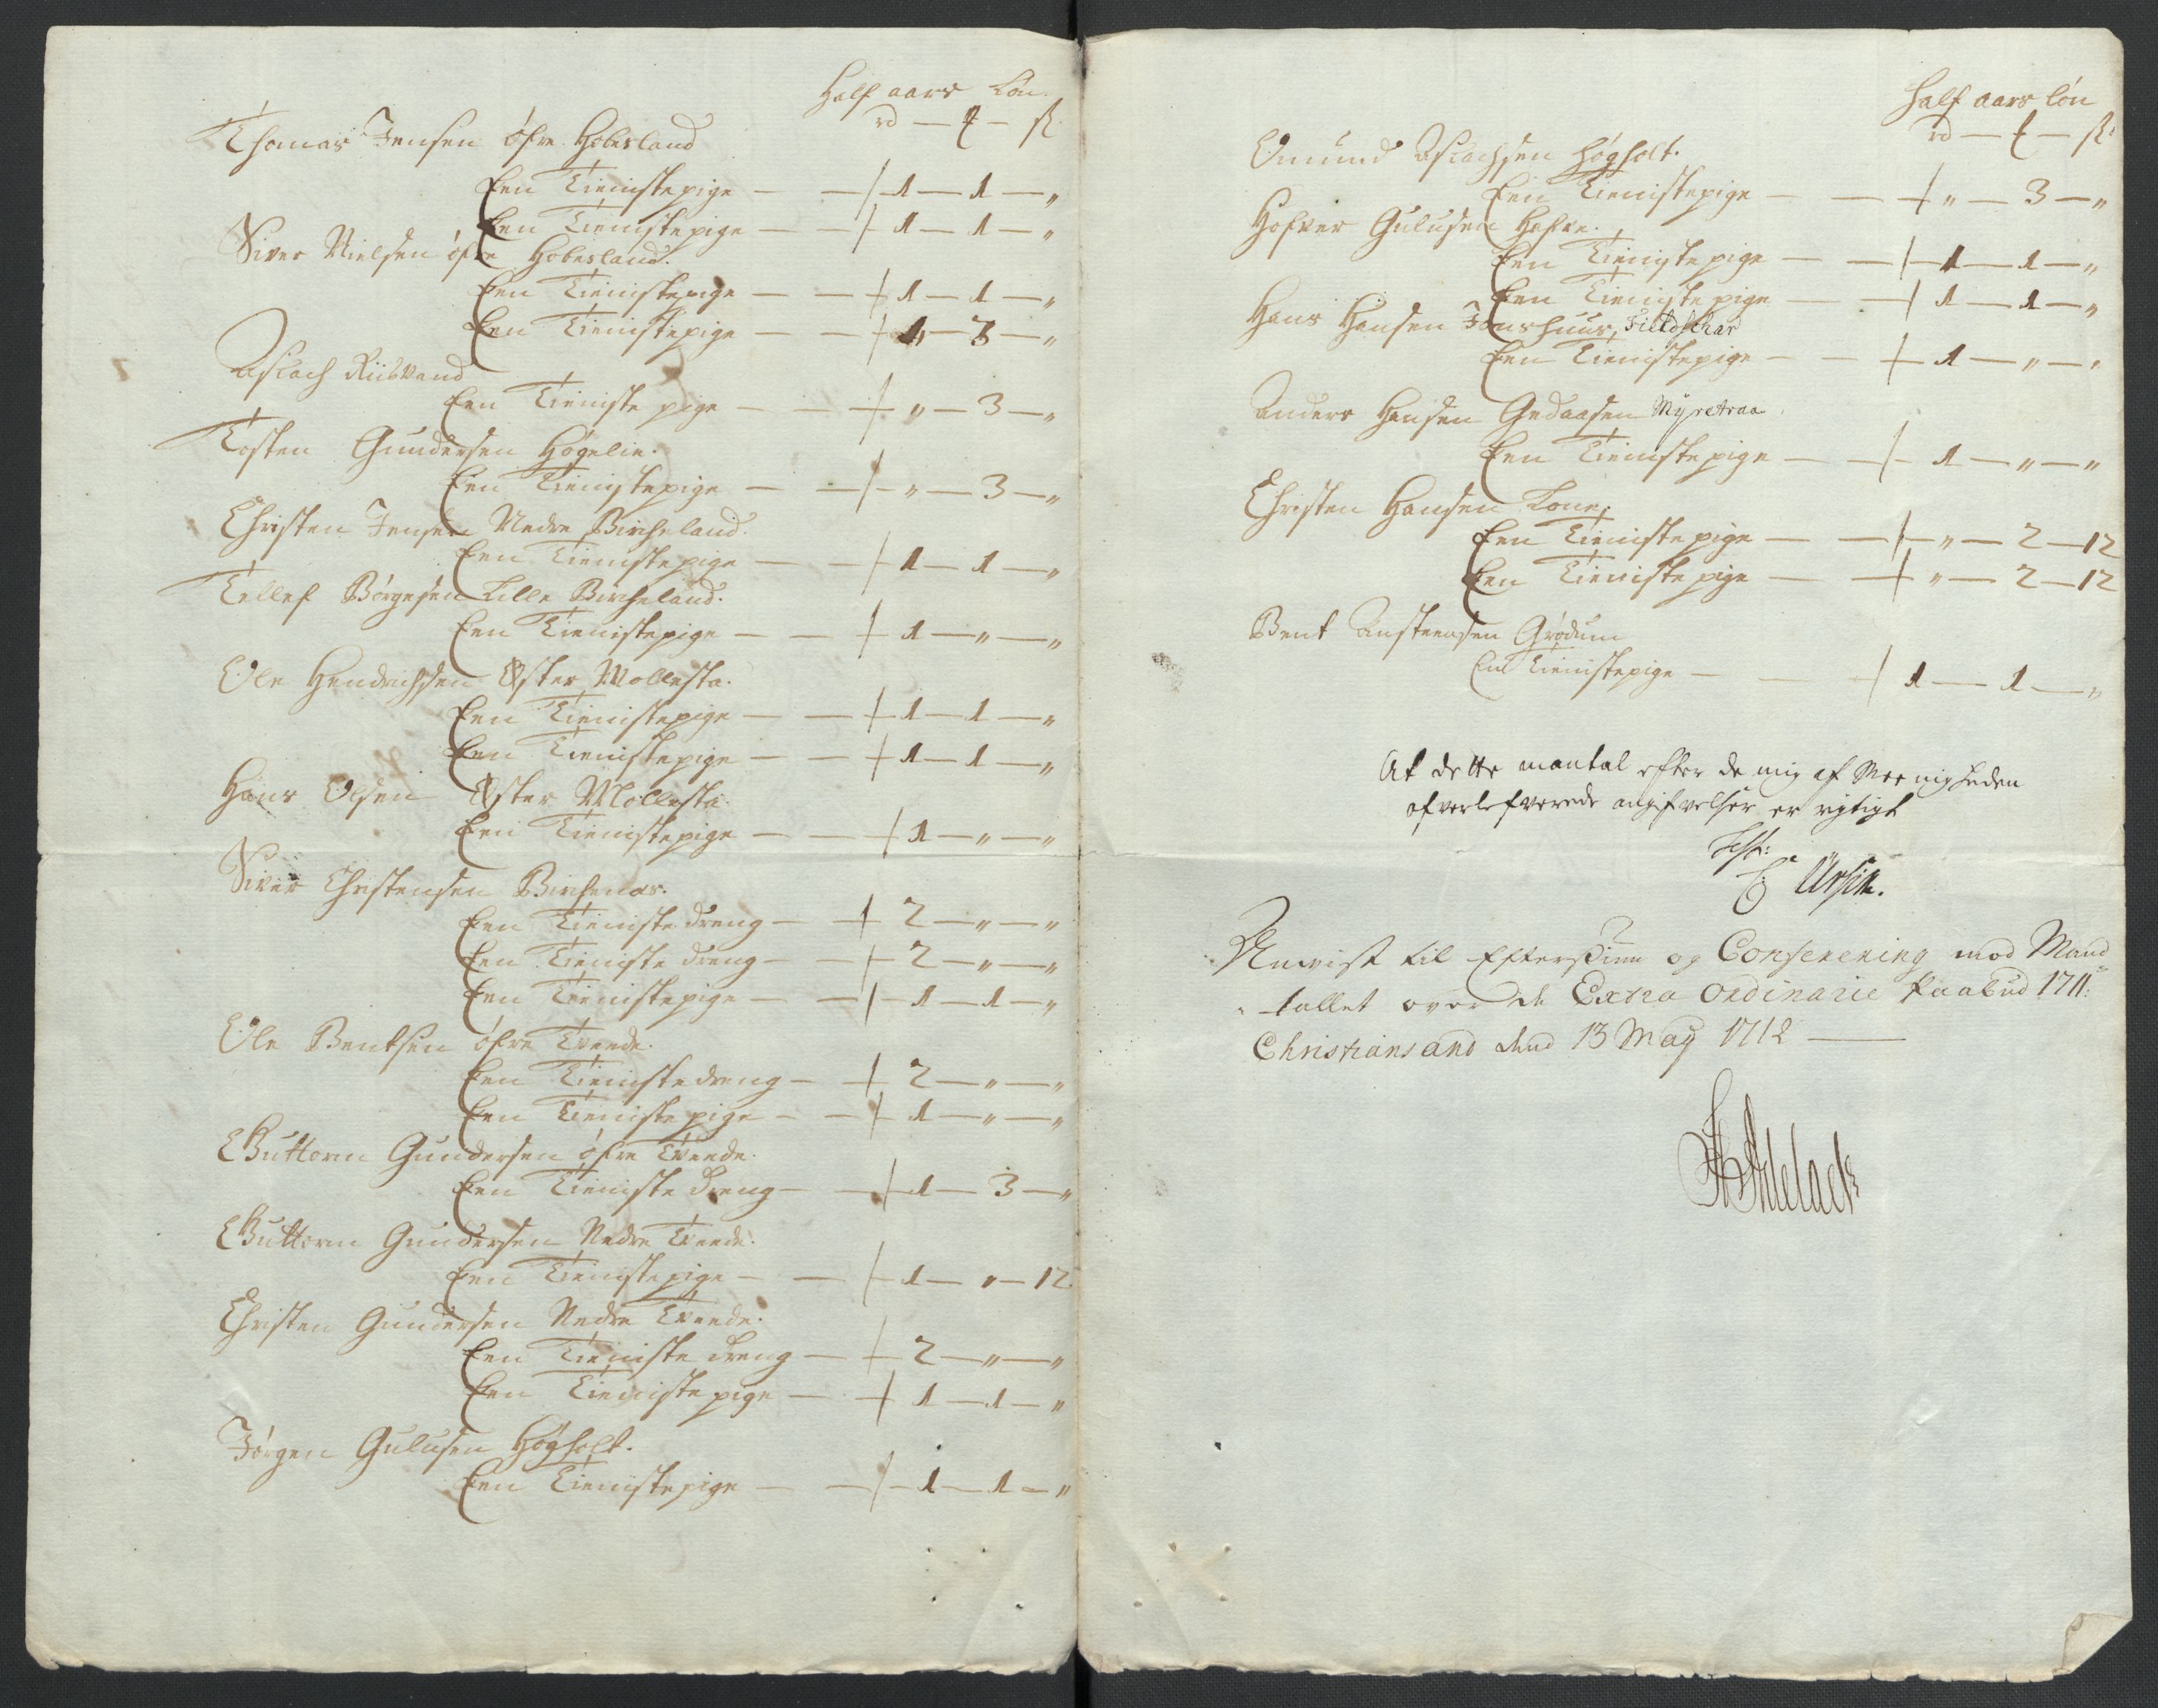 Half aars Løn.
rd — ₰ — ß
Thomas Jensen øfre Hobesland
Een Tienistepige — — 1 — 1 — „
Een Tienistepige — — 1 — 1 — „
Siver Nielsen øfre Hobesland.
Een Tienistepige — — 1 — 1 — „
Een Tienistepige — — „ — 3 — „
Aslach Riisvand
Een Tieniste pige — — „ — 3 — „
Tosten Gundersen Høgelie.
Een Tienistepige — — „ — 3 — „
Christen Jensen Nedre Bircheland.
Een Tienistepige — — 1 — 1 — „
Tellef Børgesen Lille Bircheland.
Een Tienistepige — — 1 — „ — „
Ole Hendrichsen Øster Mollesta.
Een Tienistepige — — 1 — 1 — „
Een Tienistepige — — 1 — 1 — „
Hans Olsen Øster Mollesta.
Een Tienistepige — — 1 — „ — „
Siver Christensen Birchenes.
Een Tieniste dreng — 2 — „ — „
Een Tieniste dreng — 2 — „ — „
Een Tienistepige — — 1 — 1 — „
Ole Bentsen øfre Tveede.
Een Tienistedreng — 2 — „ — „
Een Tieniste pige — — 1 — „ — „
Guttorm Gundersen øfre Tveede.
Een Tieniste dreng — — 1 — 3 — „
Guttorm Gundersen Nedre Tveede.
Een Tienistepige — — 1 — „ — 12
Christen Gundersen Nedre Tveede.
Een Tieniste dreng — 2 — „ — „
Een Tieniste pige — 1 — 1 — „
Jørgen Gulusen Høgholt.
Een Tienistepige — — 1 — 1 — „
Half aars løn
rd — ₰ — ß
Omund Aslachsen Høgholt.
Een Tienistepige — — „ — 3 — „
Hofver Gulusen Hafre.
Een Tieniste pige — — 1 — 1 — „
Een Tieniste pige — — 1 — 1 — „
Hans Hansen Jenshuus, Fieldschar
Een Tienistepige — — 1 — „ — „
Anders Hansen Gedaasen Myretraa
Een Tienistepige — — 1 — „ — „
Christen Hansen Lone,
Een Tieniste pige — — „ — 2 — 12
Een Tieniste pige — — „ — 2 — 12
Bent Austensen Grødum
Een Tienistepige — — 1 — 1 — „
At dette mantal efter de mig af Meenigheden
ofverlefverede angifvelser er rigtigt
Test:
C: Ursin.
Anvist til Eftersiun og Conferering mod Mand
tallet over de Extra Ordinarie Paabud 1711:
Christiansand dend 13 May 1712 —